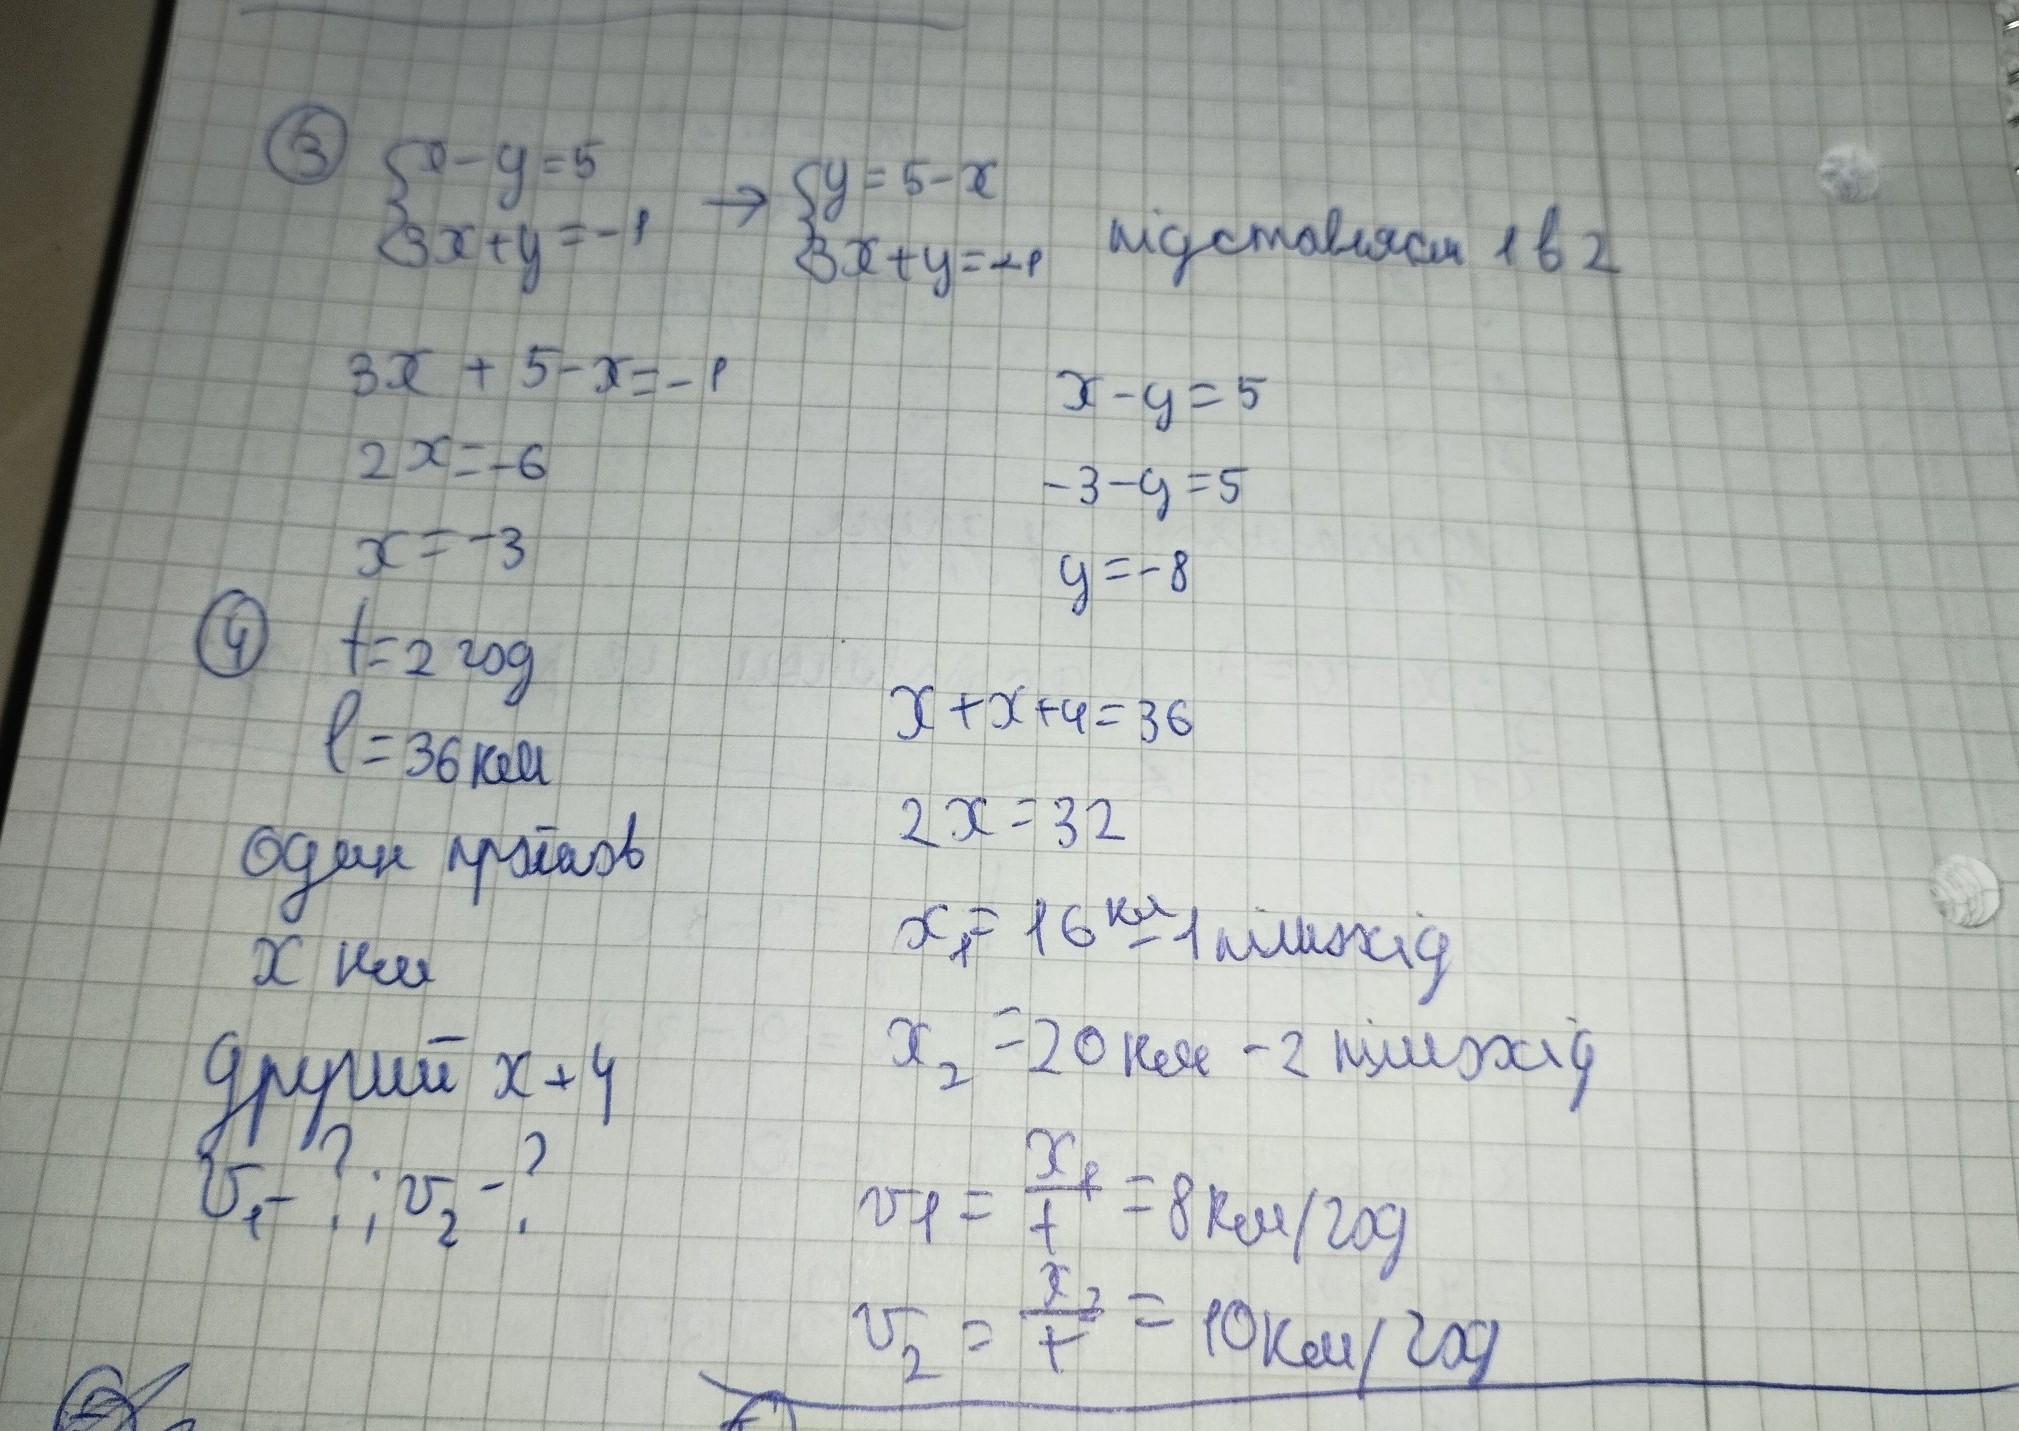 3 { x - y = 5
3x + y = -1 → { y = 5 - x
3x + y = -1 підставляєм 1 в 2
3x + 5 - x = -1
2x = -6
x = -3
x - y = 5
-3 - y = 5
y = -8
4 t = 2 год
l = 36 км
один
x км
другий x + 4
v₁ - ?; v₂ - ?
x + x + 4 = 36
2x = 32
x₁ = 16 км - 1 пішохід
x₂ = 20 км - 2 пішохід
v₁ = x₁/t = 8 км/год
v₂ = x₂/t = 10 км/год